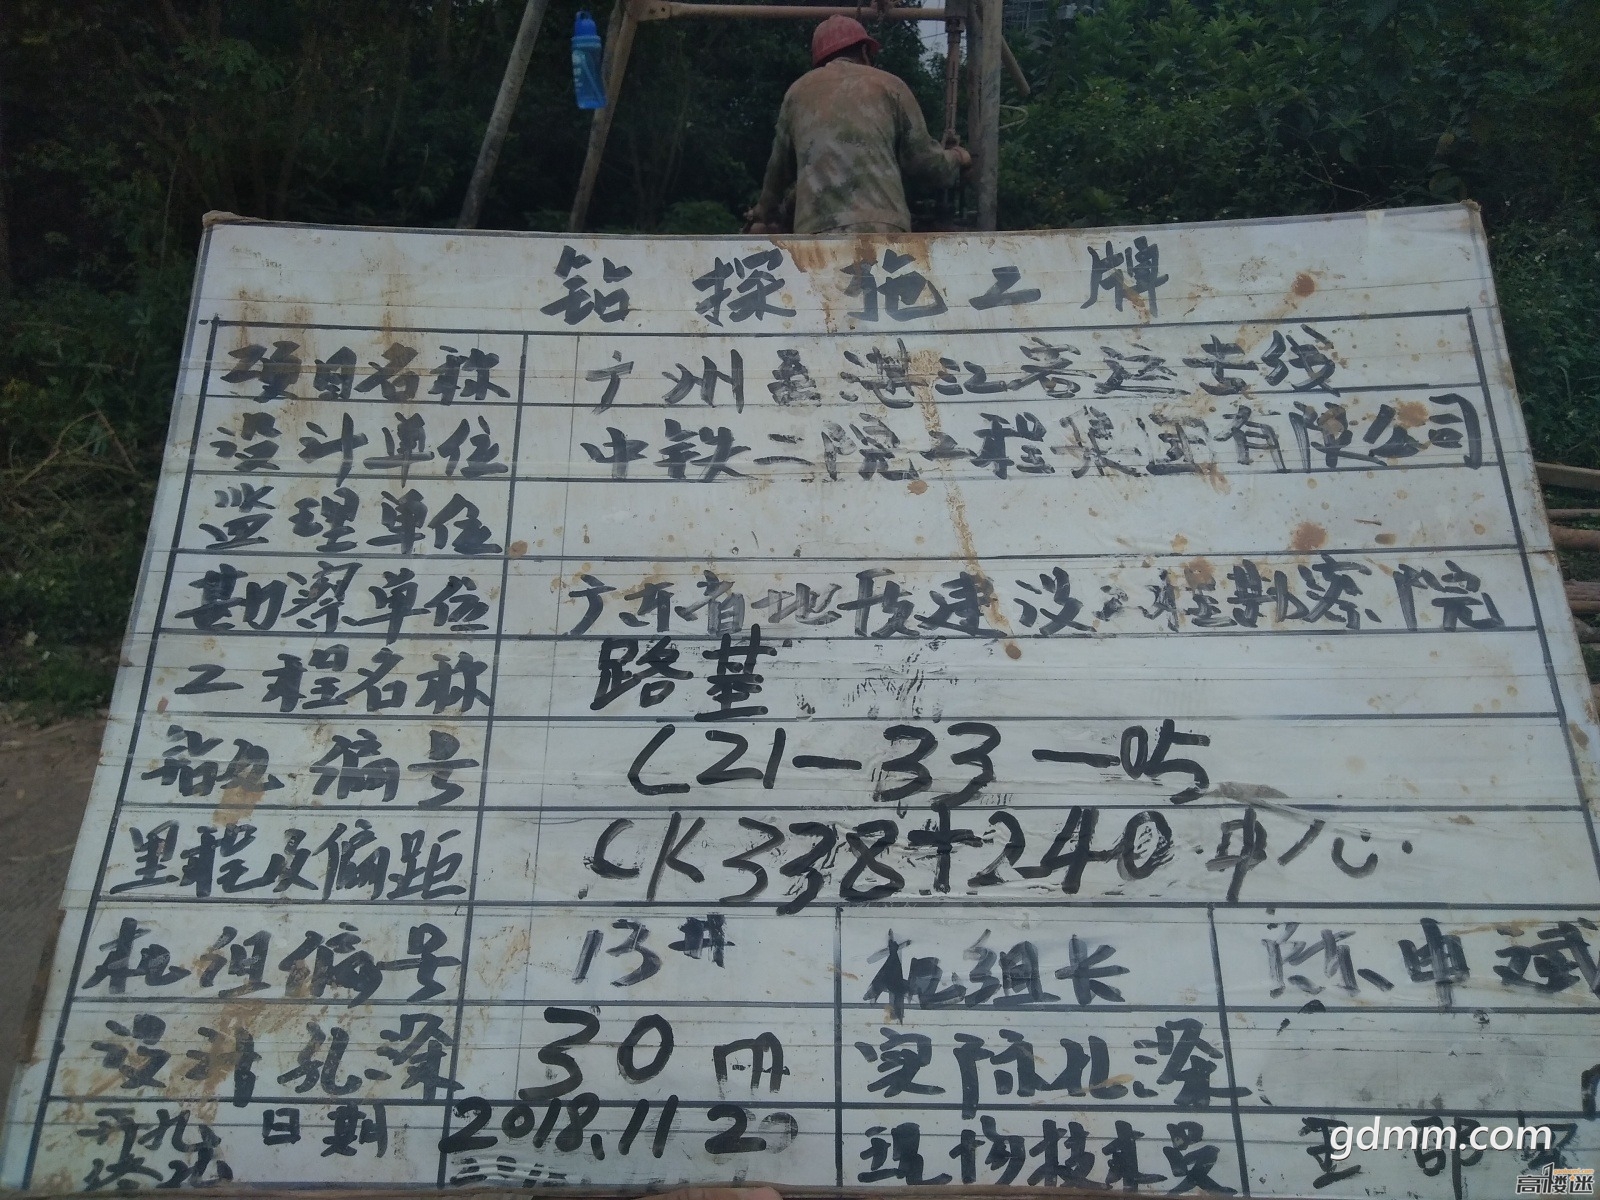 钻探施工牌
项目名称 广州至湛江客运专线
设计单位 中铁二院工程集团有限公司
监理单位
勘察单位 广东省地质建设工程勘察院
工程名称 路基
钻孔编号 CZ1-33-05
里程及偏距 CK338+240 中心.
机组编号 13# 机组长 陈申斌
设计孔深 30m 实际孔深
开孔日期 2018.11.20 现场技术员 王
终孔
gdmm.com
高楼迷